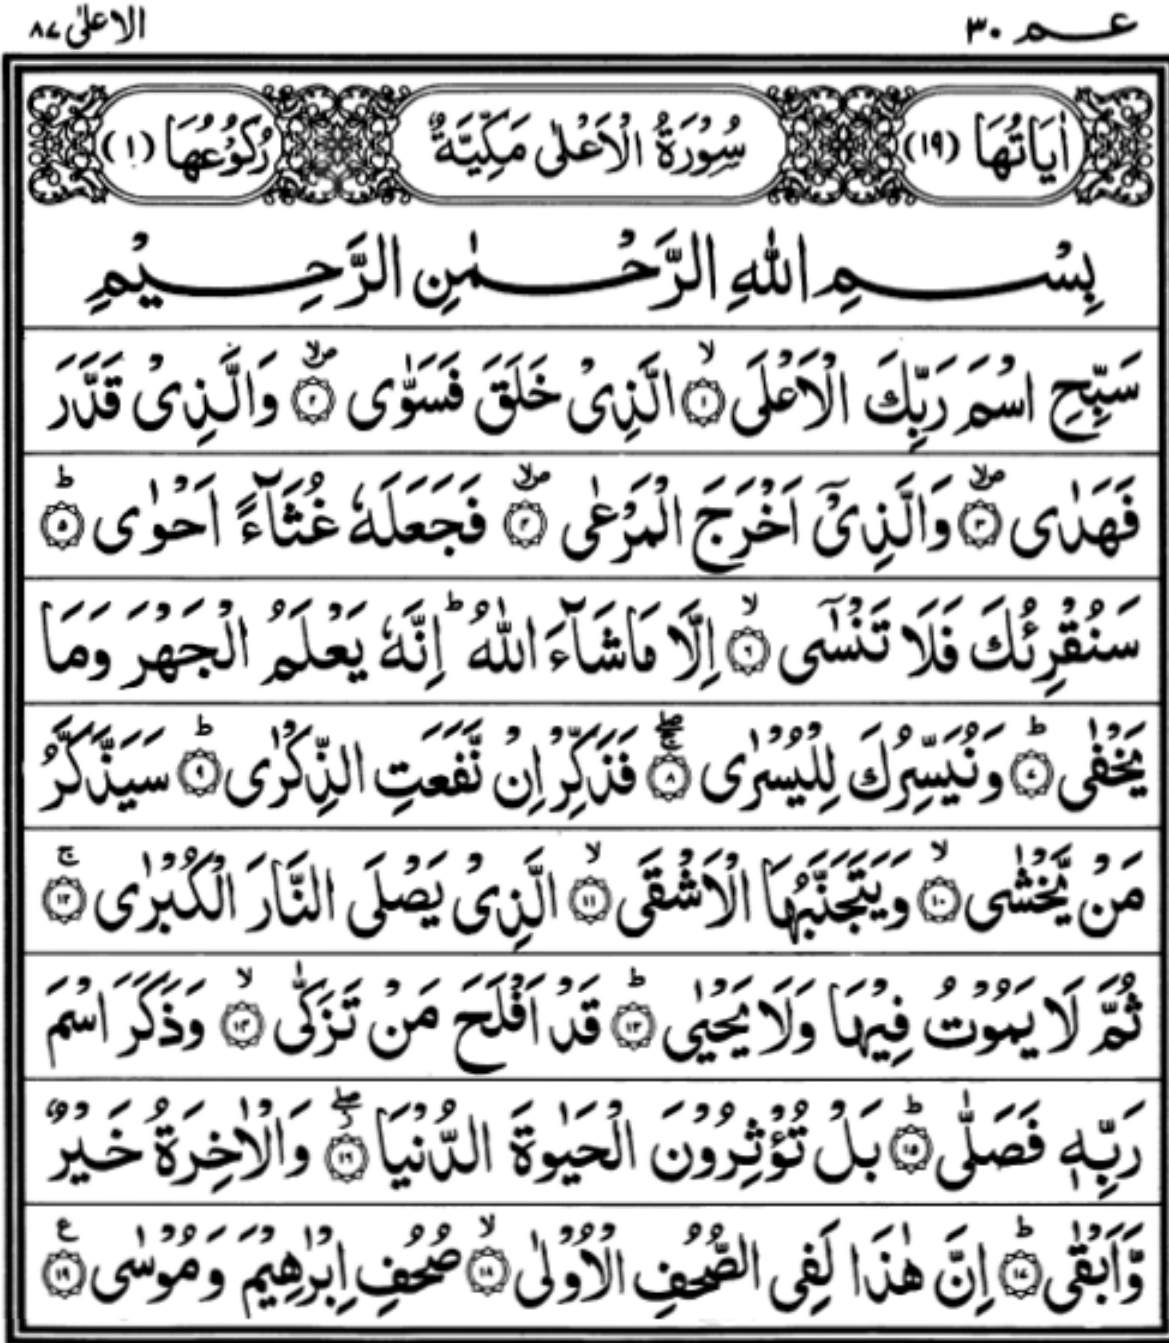 عـــم ۳۰ الاعلىٰ ۸۷
اٰيَاتُهَا (۱۹) سُوْرَةُ الْاَعْلٰى مَكِّيَّةٌ رُكُوْعُهَا (۱)
بِسْــــمِ اللهِ الرَّحْــــمٰنِ الرَّحِــــيْمِ
سَبِّحِ اسْمَ رَبِّكَ الْاَعْلَى ۙ﴿۱﴾ الَّذِىْ خَلَقَ فَسَوّٰى ۪ۙ﴿۲﴾ وَالَّذِىْ قَدَّرَ
فَهَدٰى ۪ۙ﴿۳﴾ وَالَّذِىْۤ اَخْرَجَ الْمَرْعٰى ۪ۙ﴿۴﴾ فَجَعَلَهٗ غُثَآءً اَحْوٰى ؕ﴿۵﴾
سَنُقْرِئُكَ فَلَا تَنْسٰٓى ۙ﴿۶﴾ اِلَّا مَاشَآءَ اللهُ ؕ اِنَّهٗ يَعْلَمُ الْجَهْرَ وَمَا
يَخْفٰى ؕ﴿۷﴾ وَنُيَسِّرُكَ لِلْيُسْرٰى ۖۚ﴿۸﴾ فَذَكِّرْ اِنْ نَّفَعَتِ الذِّكْرٰى ؕ﴿۹﴾ سَيَذَّكَّرُ
مَنْ يَّخْشٰى ۙ﴿۱۰﴾ وَيَتَجَنَّبُهَا الْاَشْقَى ۙ﴿۱۱﴾ الَّذِىْ يَصْلَى النَّارَ الْكُبْرٰى ۚ﴿۱۲﴾
ثُمَّ لَا يَمُوْتُ فِيْهَا وَلَا يَحْيٰى ؕ﴿۱۳﴾ قَدْ اَفْلَحَ مَنْ تَزَكّٰى ۙ﴿۱۴﴾ وَذَكَرَ اسْمَ
رَبِّهٖ فَصَلّٰى ؕ﴿۱۵﴾ بَلْ تُؤْثِرُوْنَ الْحَيٰوةَ الدُّنْيَا ۖ﴿۱۶﴾ وَالْاٰخِرَةُ خَيْرٌ
وَّاَبْقٰى ؕ﴿۱۷﴾ اِنَّ هٰذَا لَفِى الصُّحُفِ الْاُوْلٰى ۙ﴿۱۸﴾ صُحُفِ اِبْرٰهِيْمَ وَمُوْسٰى ﴿۱۹﴾ ع